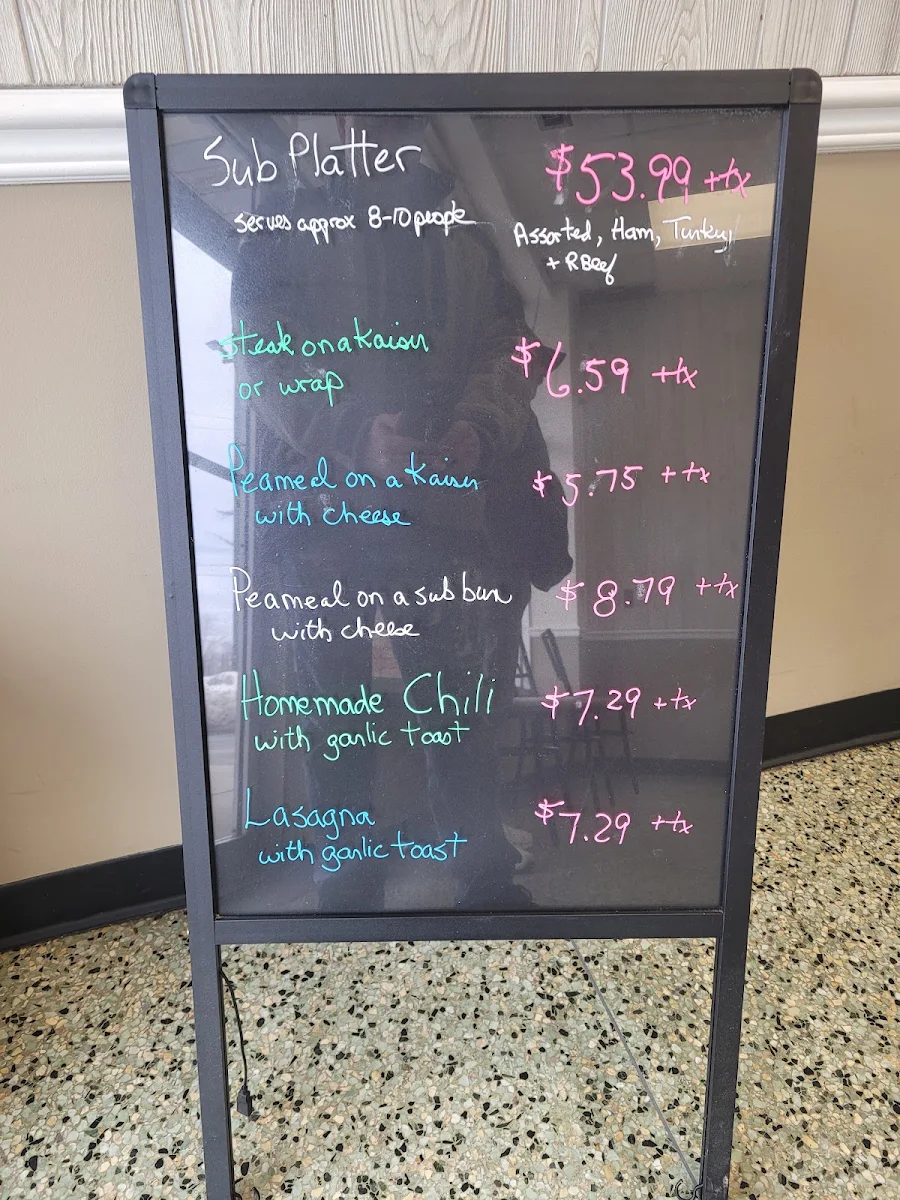 Sub Platter $53.99 +tx
serves approx 8-10 people
Assorted, Ham, Turkey,
+ R Beef
Steak on a Kaiser $6.59 +tx
or wrap
Peameal on a Kaiser $5.75 +tx
with cheese
Peameal on a sub bun $8.79 +tx
with cheese
Homemade Chili $7.29 +tx
with garlic toast
Lasagna $7.29 +tx
with garlic toast